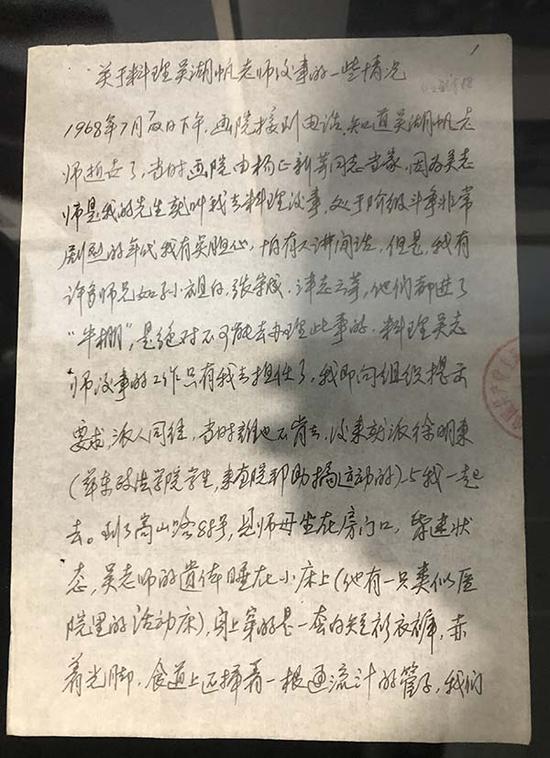 1
关于料理吴湖帆老师后事的一些情况
1968年7月 日下午,画院接到电话,知道吴湖帆老
师逝世了,当时画院由杨正新等同志当家,因为吴老
师是我的先生就叫我去料理后事,处于阶级斗争非常
剧烈的年代我有些担心,怕有不讲闲话,但是,我有
许多师兄如孙祖白、张守成、 等,他们都进了
“牛棚”,是绝对不可能去办理此事的,料理吴老
师后事的工作只有我去担任了,我即向组织提出
要求,派人同往,当时谁也不肯去,后来就派徐明东
(华东政法学院学生,来画院帮助搞运动的)与我一起
去。到了嵩山路88号,见师母坐在房门口,昏迷状
态,吴老师的遗体睡在小床上(他有一只类似医
院里的活动床),身上穿的是一套白短衫衣裤,赤
着光脚,食道上还插着一根通流汁的管子,我们